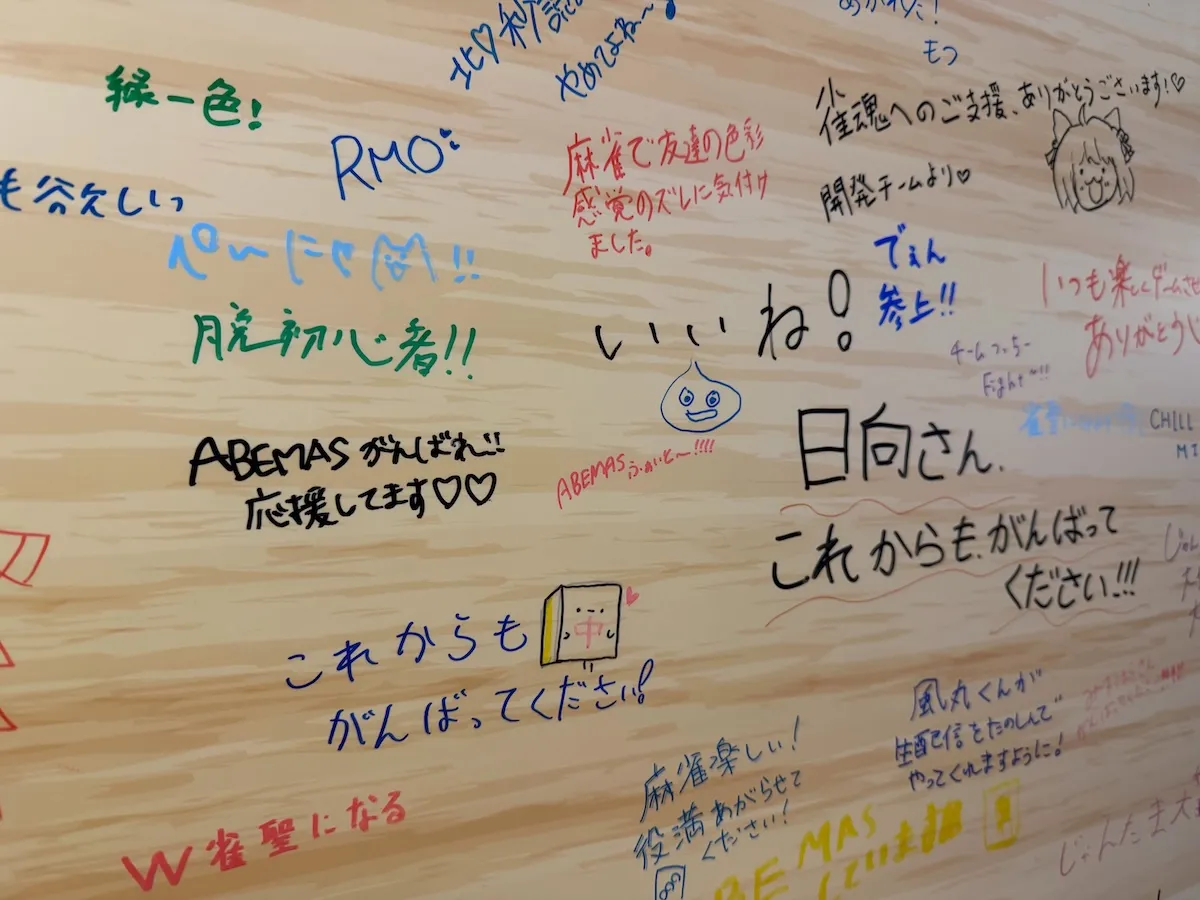 緑一色!
RMO
も欲しいっ
ぺーにゃ!!
脱初心者!!
ABEMASがんばれ!!
応援してます♡♡
これからも
中
がんばってください!
W雀聖になる
やめてよね〜
麻雀で友達の色彩
感覚のズレに気付け
ました。
いいね!
ABEMASふぁいと〜!!!!
もつ
雀魂へのご支援、ありがとうございます!♡
開発チームより♡
でぇん
参上!!
いつも楽しくゲームさせ
ありがとう
Fight~!!
CHILL
MI
日向さん.
これからも.がんばって
ください!!!
麻雀楽しい!
役満あがらせて
ください!
風丸くんが
生配信をたのしんで
やってくれますように!
じゃんたま大